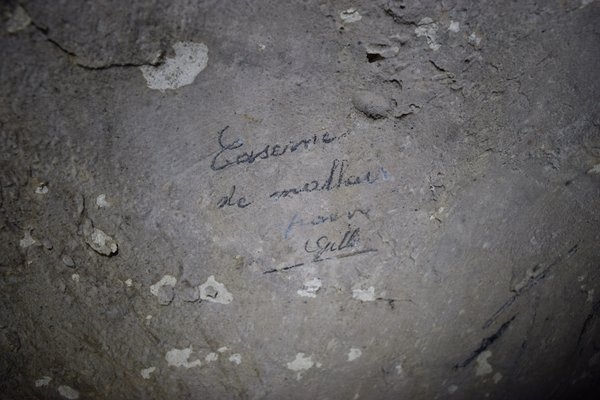 Caserne
de malheur
pour
Gill